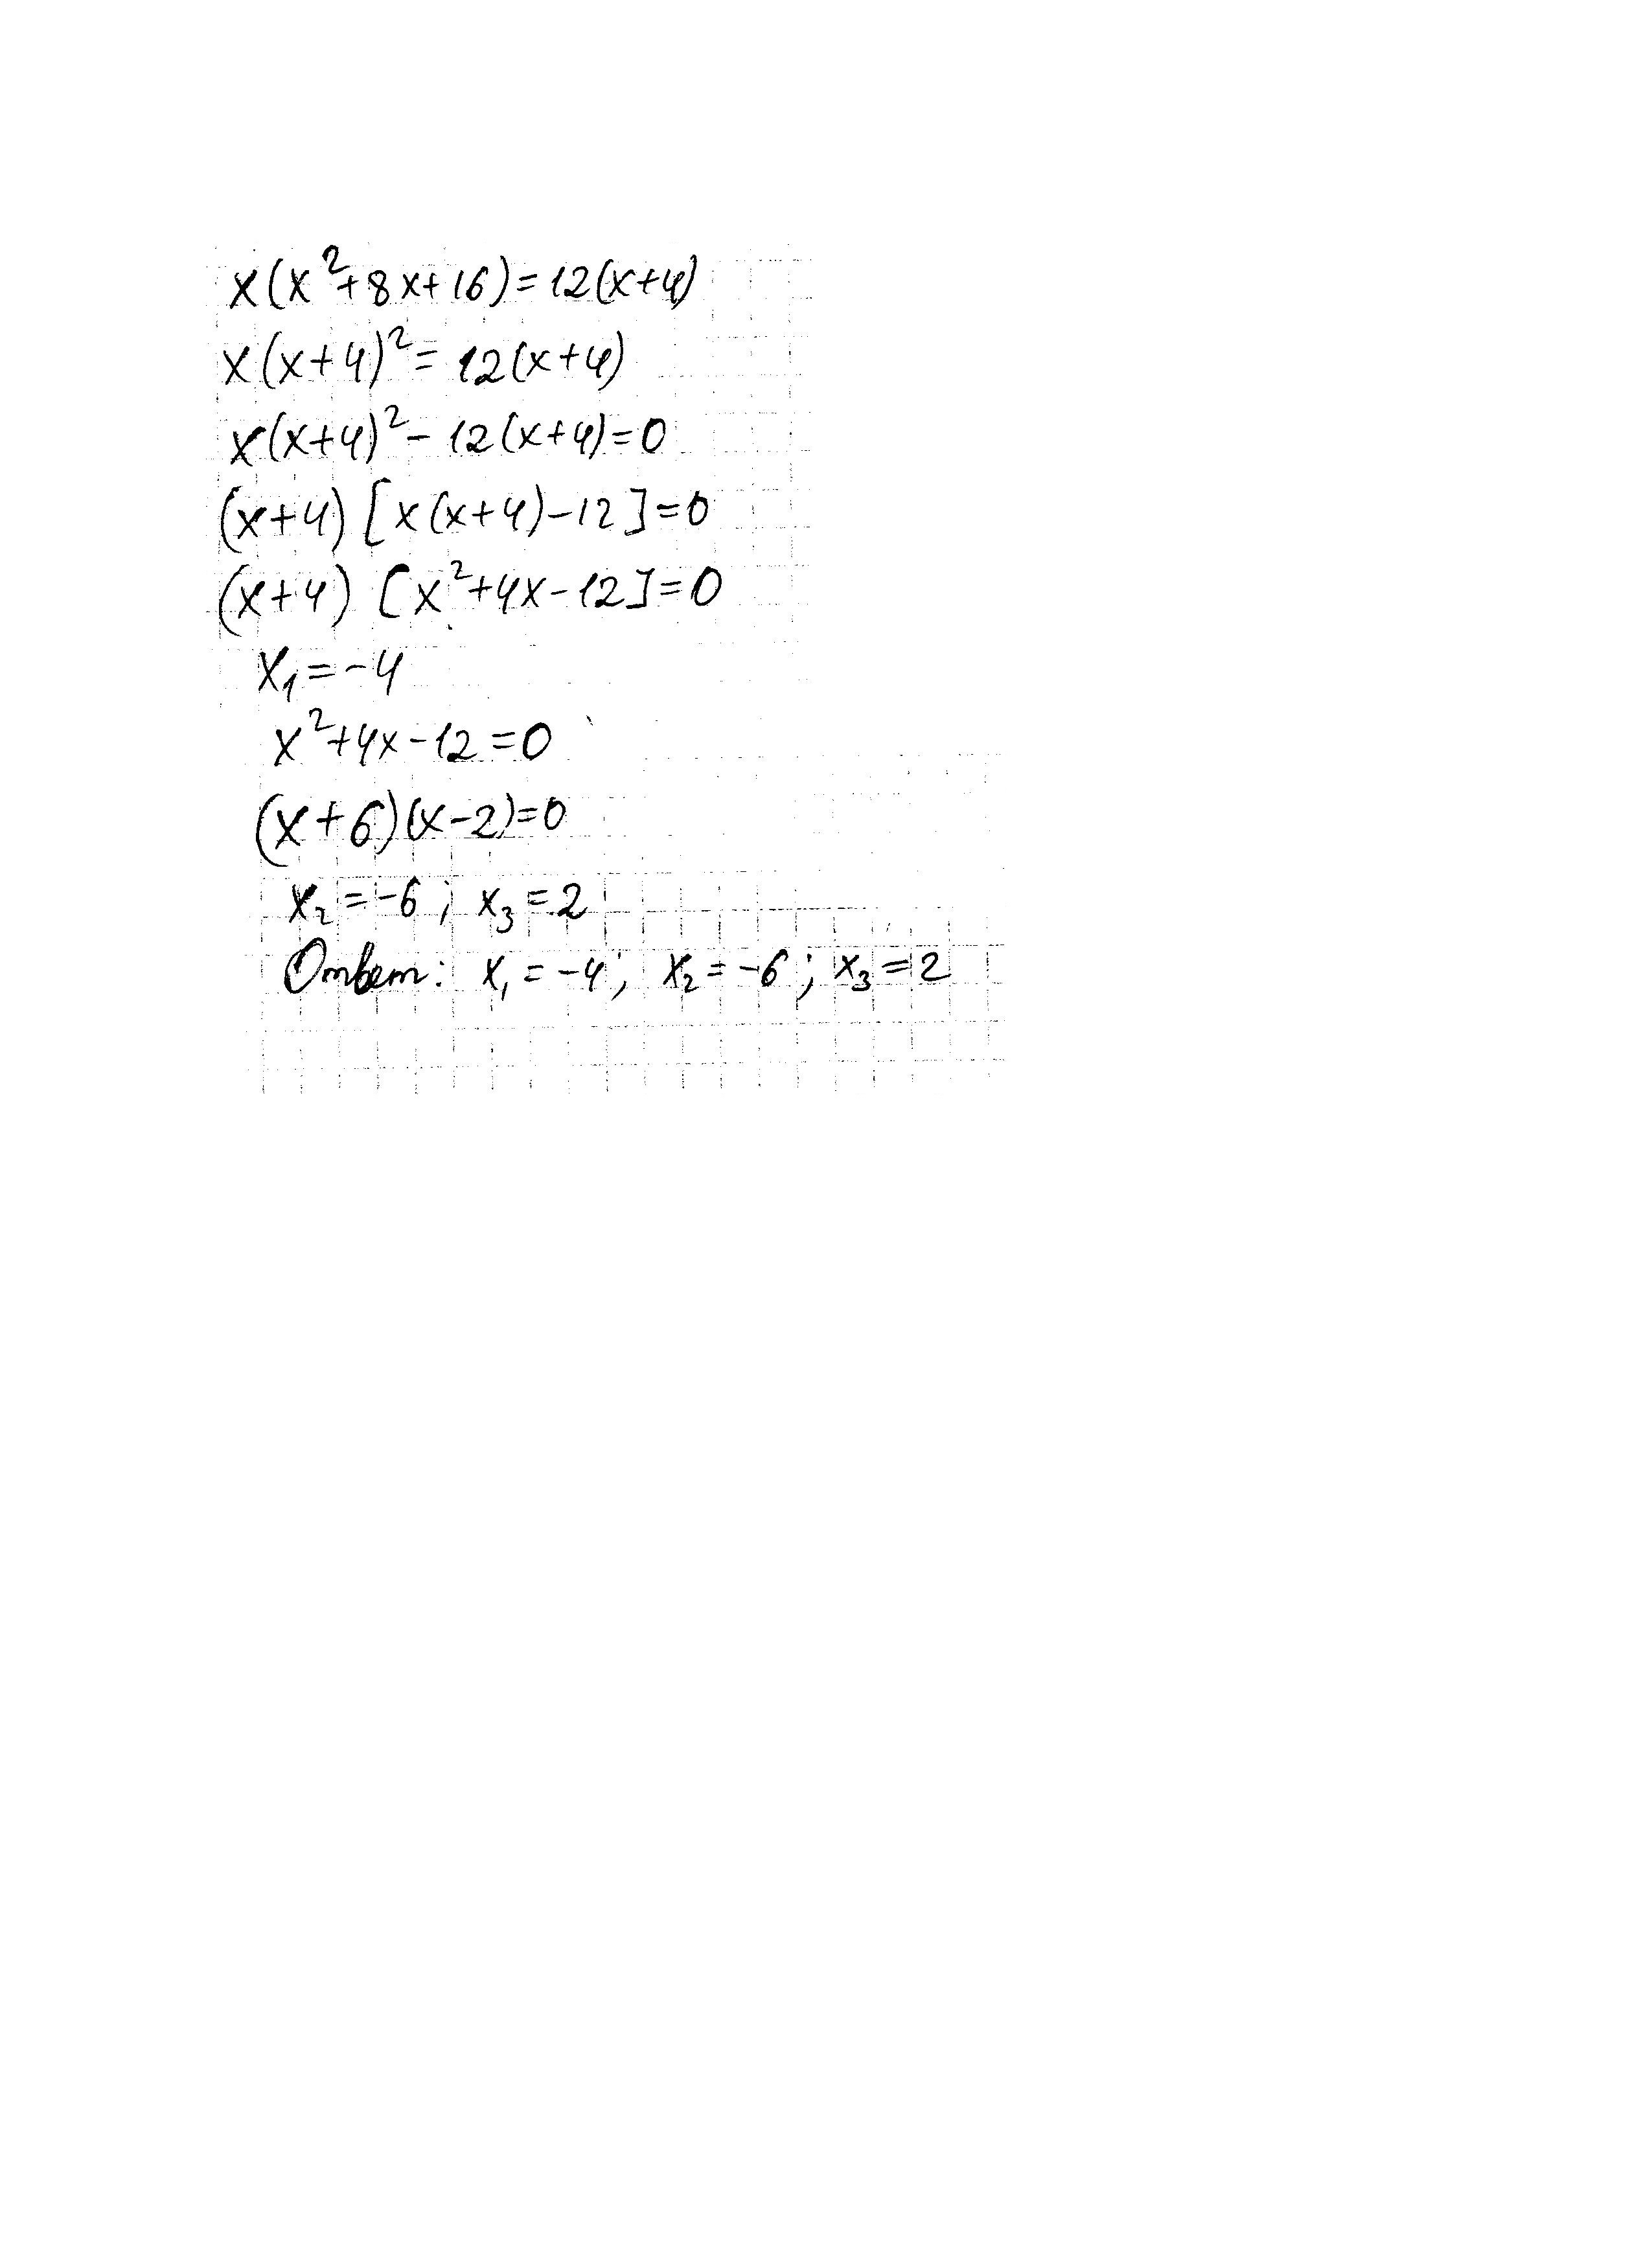 x(x²+8x+16)=12(x+4)
x(x+4)²=12(x+4)
x(x+4)²-12(x+4)=0
(x+4)[x(x+4)-12]=0
(x+4)[x²+4x-12]=0
x₁=-4
x²+4x-12=0
(x+6)(x-2)=0
x₂=-6; x₃=2
Ответ: x₁=-4; x₂=-6; x₃=2